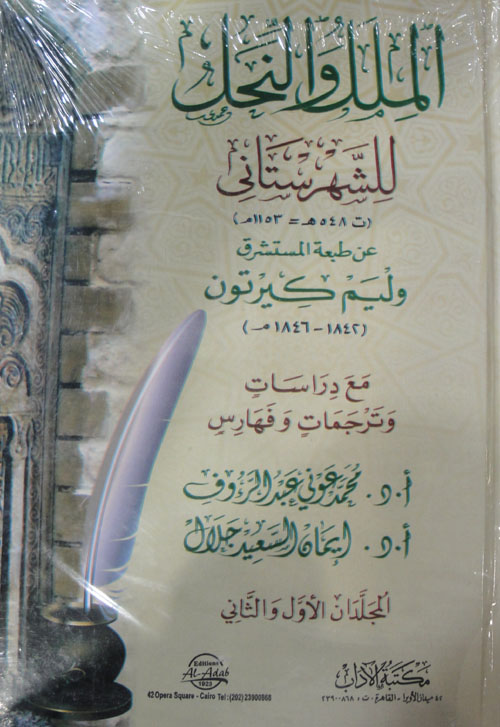 الملل والنحل
للشهرستاني
(ت ٥٤٨ هـ = ١١٥٣مـ)
عن طبعة المستشرق
وليم كيرتون
(١٨٤٢-١٨٤٦ مـ)
مَعَ دِرَاسَاتٍ
وَتَرْجَمَاتٍ وَفَهَارِسٍ
أ.د. محمد عوني عبد الرؤوف
أ.د. إيمان السعيد جلال
المجلدان الأول والثاني
Editions
Al-Adab
1923
42 Opera Square - Cairo Tel: (202) 23900868
مكتبة الآداب
٤٢ ميدان الأوبرا - القاهرة - ت: ٢٣٩٠٠٨٦٨